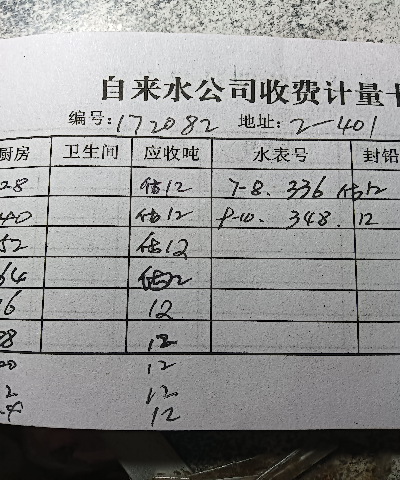 自来水公司收费计量卡
编号:172082 地址:2-401
厨房 卫生间 应收吨 水表号 封铅
28 估12 7-8. 336 估12
40 估12 9-10. 348. 12
52 估12
64 估12
6 12
88 12
00 12
2 12
12